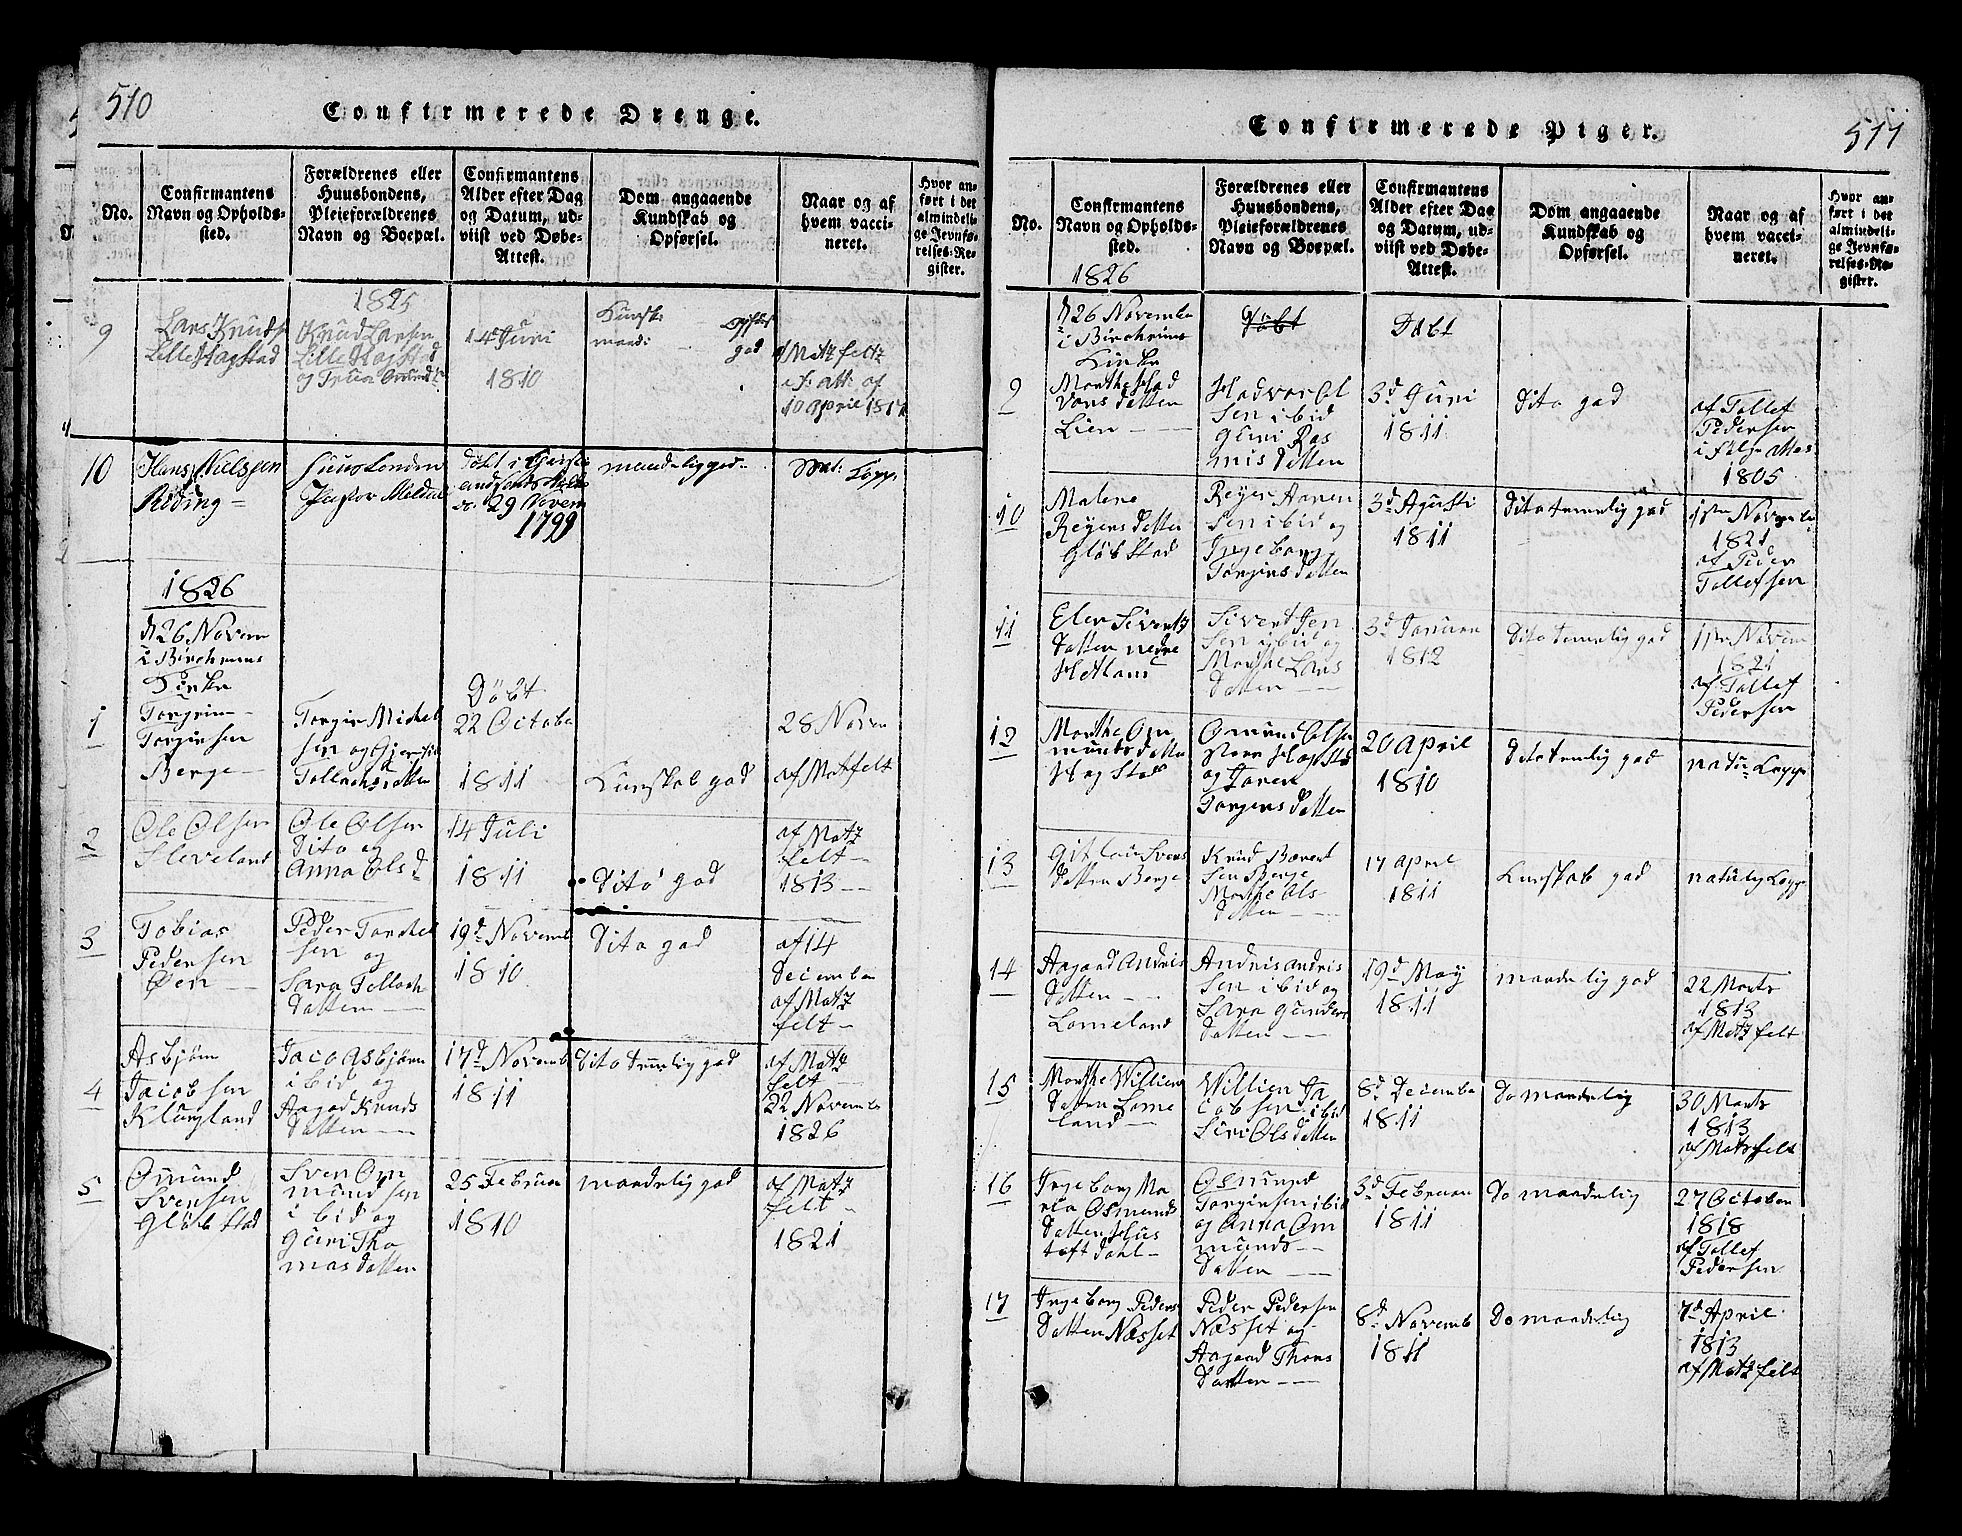 510
Confirmerede Drenge.
No.
Confirmantens
Navn og Opholds-
sted.
Forældrenes eller
Huusbondens,
Pleieforældrenes
Navn og Boepæl.
Confirmantens
Alder efter Dag
og Datum, ud-
viist ved Døbe-
Attest.
Dom angaaende
Kundskab og
Opførsel.
Naar og af
hvem vacci-
neret.
Hvor an-
ført i det
almindeli-
ge Jevnfø-
relses-Re-
gister.
1825
9
Lars Knuds
Lille Hagstad
Knud Larsen
Lille Hagstad
og
14 Juni
1810
god
Matzfelt
af
10 April
10
Hans Nielssen
Röding
Pastor
Döbt i
29 Novem
1799
maadelig god
1826
d 26 Novem
i Birchrems
Kirke
1
Torgrim
Torgirsen
Berge
Torgir Michel
sen og
Döbt
22 Octobe
1811
Kunskab god
28 Novm
af Matzfelt
2
Ole Olsen
Sleveland
Ole Olsen
Dito og
Anna Ols d
14 Juli
1811
Dito god
af Matz
felt
1813
3
Tobias
Pedersen
Øen
Peder Torchel
sen og
Sara Tollach
Datter
19d Novemb
1810
Dito god
af 14
December
af Matz
felt
4
Asbjörn
Jacobsen
Klungland
Jacob Asbjörn
ibid og
Aagod Knuds
Datter
17d Novemb
1811
Dito temelig god
af Matz
felt
22 Novemb
1826
5
Omund
Svensen
Glöbstad
Sven Om
mundsen
ibid og
Guri Tho
mas Datter
25 Februar
1810
maadelig god
af Matz
felt
1821
511
Confirmerede Piger.
No.
Confirmantens
Navn og Opholds-
sted.
Forældrenes eller
Huusbondens,
Pleieforældrenes
Navn og Boepæl.
Confirmantens
Alder efter Dag
og Datum, ud-
viist ved Døbe-
Attest.
Dom angaaende
Kundskab og
Opførsel.
Naar og af
hvem vacci-
neret.
Hvor an-
ført i det
almindeli-
ge Jevnfø-
relses-Re-
gister.
1826
d 26 Novembe
i Birchrems
Kirke
Döbt
Döbt
9
Marthe Had
vors Datter
Lien
Hadvor Ol
sen ibid
Guri Ras
mis Datter
3d Juni
1811
Dito god
af Tollef
Pedersen
1805
10
Malene
Reyers Datter
Glöbstad
Reyer Aanen
sen ibid og
Ingeborg
Torgirs Datter
3d Agusti
1811
Dito temelig god
1ste Novemb
1821
af Peder
Tollefsen
11
Elen Siverts
Datter nedre
Hetland
Sivert Jen
sen ibid og
Marthe Lars
Datter
3d Januar
1812
Dito temelig god
1ste Novem
1821
af Tollef
Pedersen
12
Marthe Om
munds Datter
Hagstad
Omund Olsen
Store Hagstad
og Taren
Torgers Datter
20 April
1810
Dito temlig god
13
Svens
Datter Berge
Knud
sen Berge
Marthe Ols
Datter
17 April
1811
Kunskab god
14
Aagaad Andris
Datter
Lomeland
Andris Andris
sen ibid og
Sara Gunders
Datter
19d May
1811
maadelig god
22 Marts
1813
af Matzfelt
15
Marthe Williens
Datter Lome
land
Willien Ja
cobsen ibid
Siri Ols Datter
8d Decembe
1811
Do maadelig
30 Marts
1813
af Matzfelt
16
Ingeborg Ma
ria Osmunds
Datter Hus
toft Dahl
Osmund
Torgirsen ibid
og Anna Om
munds
Datter
3d Februar
1811
Do maadelig
27 October
1818
af Tollef
Pedersen
17
Ingeborg Peders
Datter Næsset
Peder Pedersen
Næsset og
Aagaad Thors
Datter
8d Novemb
1811
Do maadelig
7d April
1813
af Matzfelt